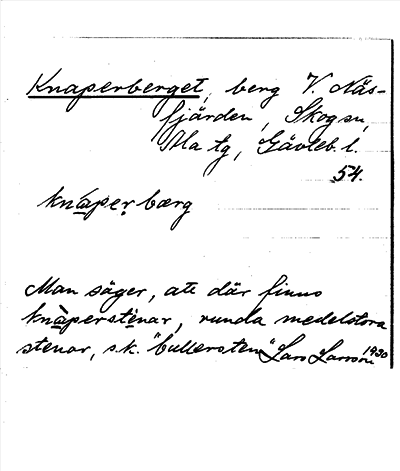 Knaperberget, berg V. Näs-
fjärden, Skogsn,
Ala tg, Gävleb. l.
54.
knaper bærg
Man säger, att där finns
knàperstenar, runda medelstora
stenar, s.k. "bullersten" Lars Larsson 1930